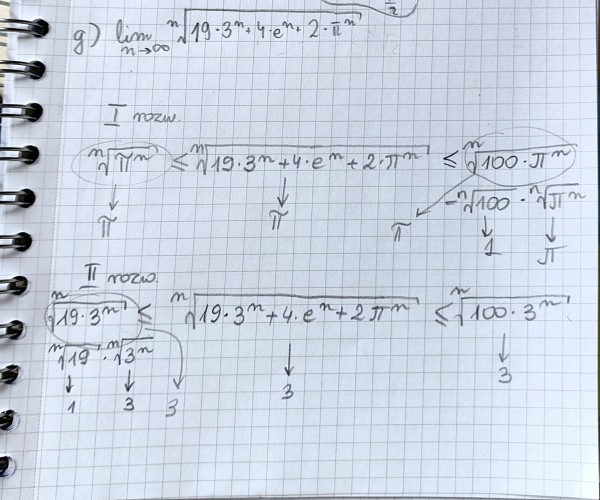 g) lim n→∞ ⁿ√(19·3ⁿ+4·eⁿ+2·πⁿ)
I rozw.
ⁿ√(πⁿ) ≤ ⁿ√(19·3ⁿ+4·eⁿ+2·πⁿ) ≤ ⁿ√(100·πⁿ)
↓ ↓ = ⁿ√100 · ⁿ√(πⁿ)
π π π ↓ ↓
1 π
II rozw.
ⁿ√(19·3ⁿ) ≤ ⁿ√(19·3ⁿ+4·eⁿ+2πⁿ) ≤ ⁿ√(100·3ⁿ)
ⁿ√19 · ⁿ√(3ⁿ) ↓ ↓
↓ ↓ ↓ 3 3
1 3 3